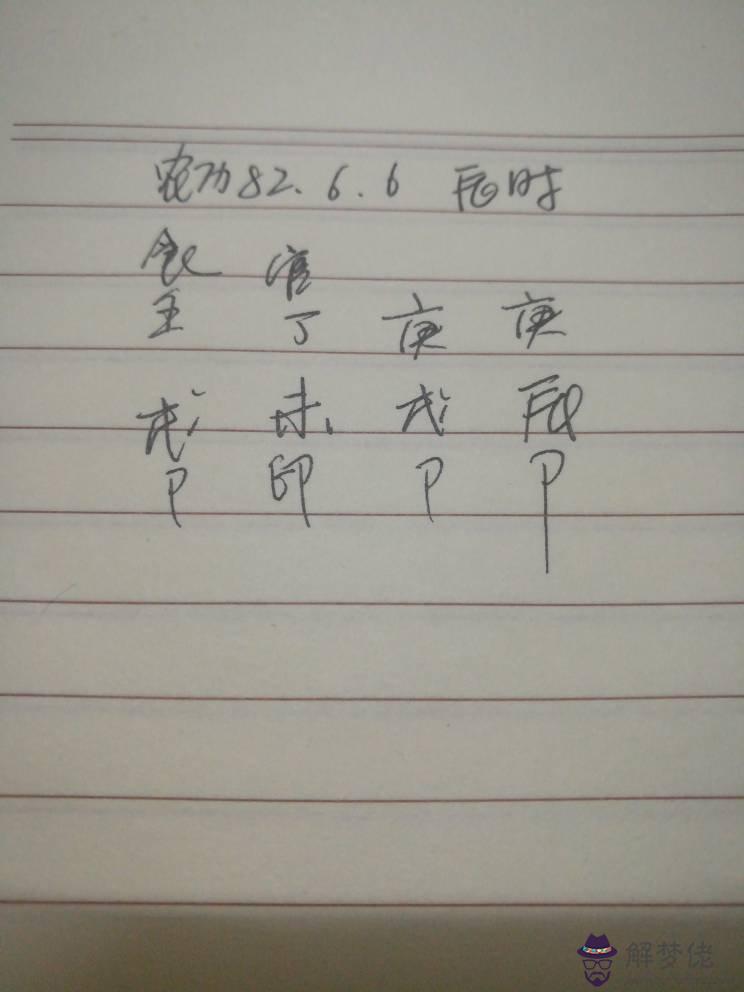 农历82.6.6 辰时
食 官
壬 丁 庚 庚
戌 未 戌 辰
P 印 P P
解梦佬